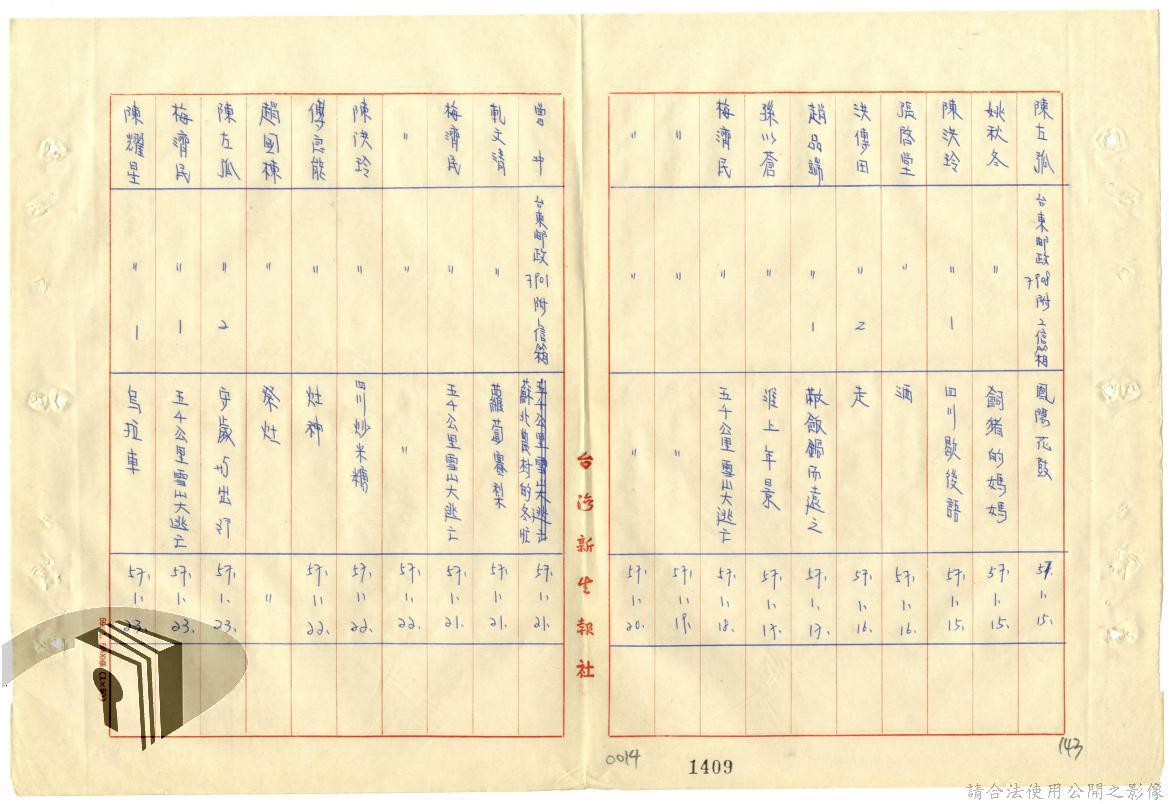 陳左弧 台東郵政7908附2信箱 鳳陽花鼓 57.1.15.
姚秋冬 〃 飼豬的媽媽 57.1.15.
陳洪玲 〃 1 四川歇後語 57.1.15.
張啓堂 〃 酒 57.1.16.
洪傳田 〃 2 走 57.1.16.
趙品端 〃 1 敵飯鍋而遠之 57.1.17.
孫以蒼 〃 淮上年景 57.1.17.
梅濟民 〃 五千公里雪山大逃亡 57.1.18.
〃 〃 〃 57.1.19.
〃 〃 〃 57.1.20.
台灣新生報社
曾中 台東郵政7901附1信箱 五千公里雪山大逃亡 蘇北農村的冬忙 57.1.21.
軋文清 〃 蘿蔔賽梨 57.1.21.
梅濟民 〃 五千公里雪山大逃亡 57.1.21.
〃 〃 〃 57.1.22.
陳洪玲 〃 四川炒米糖 57.1.22.
傅良能 〃 灶神 57.1.22.
趙國棟 〃 祭灶 〃
陳左弧 〃 2 守歲與出行 57.1.23.
梅濟民 〃 1 五千公里雪山大逃亡 57.1.23.
陳耀星 〃 1 烏拉車 57.1.23.
0014
1409
143
請合法使用公開之影像